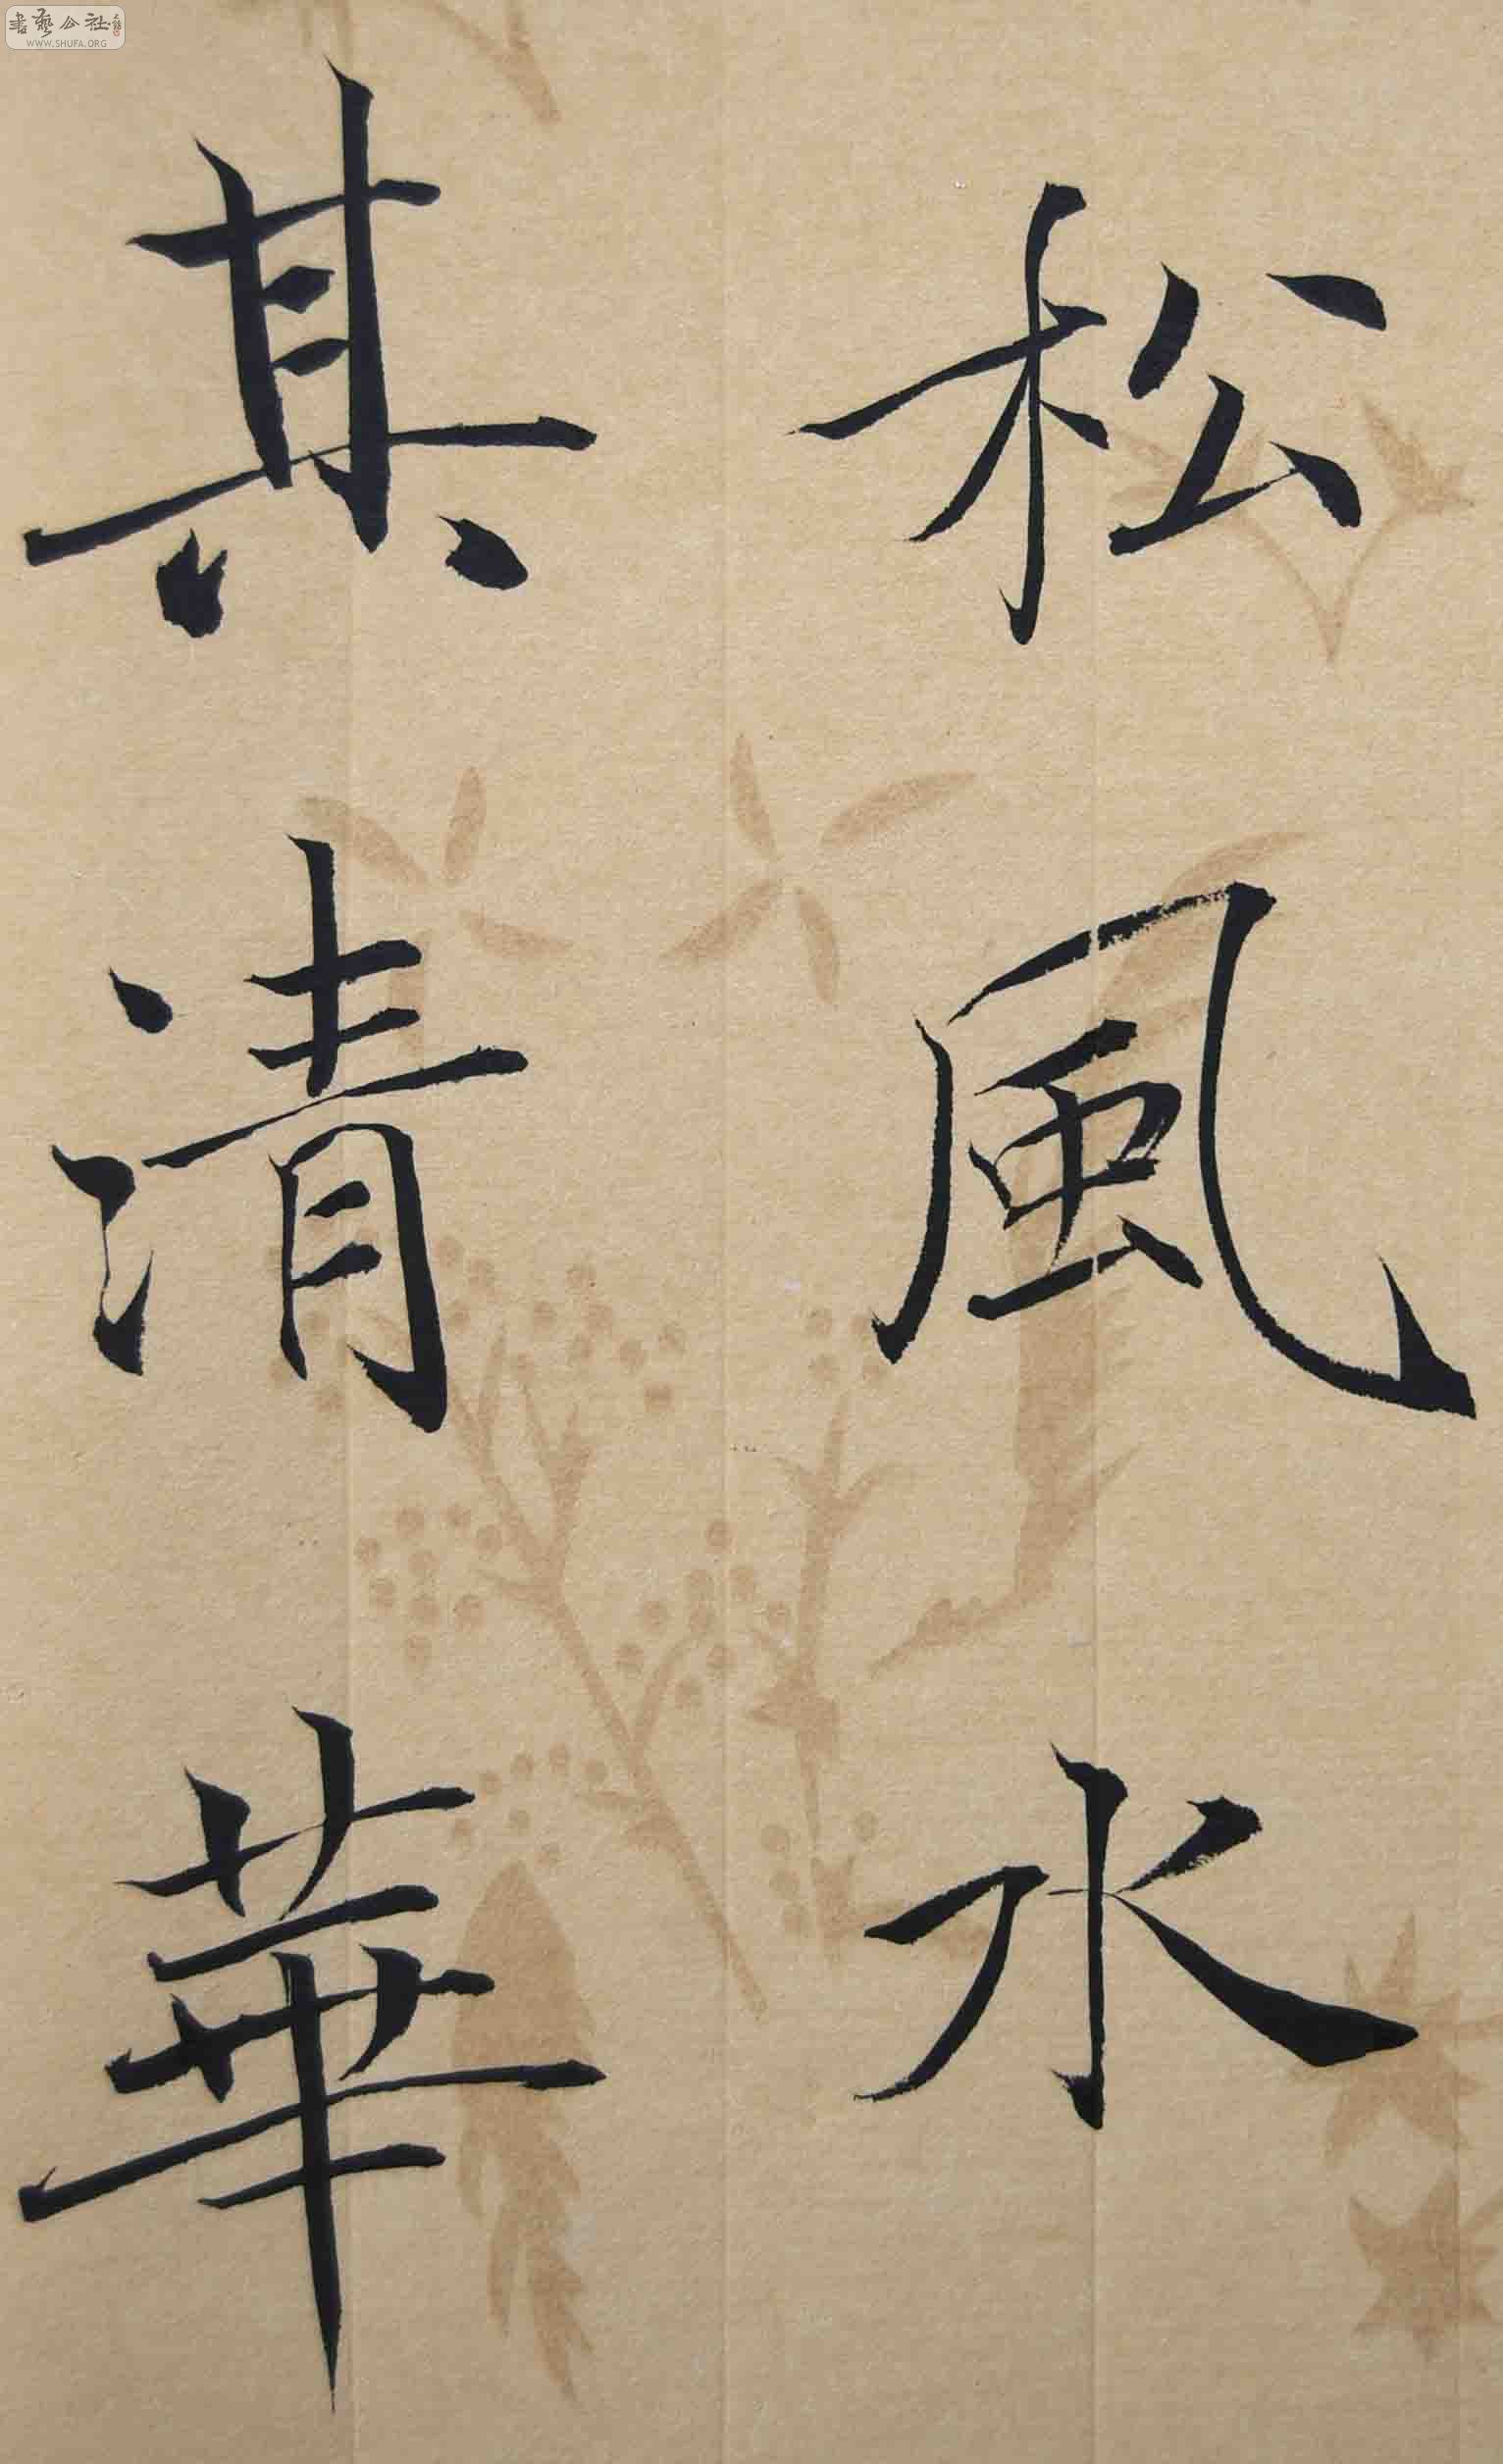 松風水
其清華
書藝公社
WWW.SHUFA.ORG